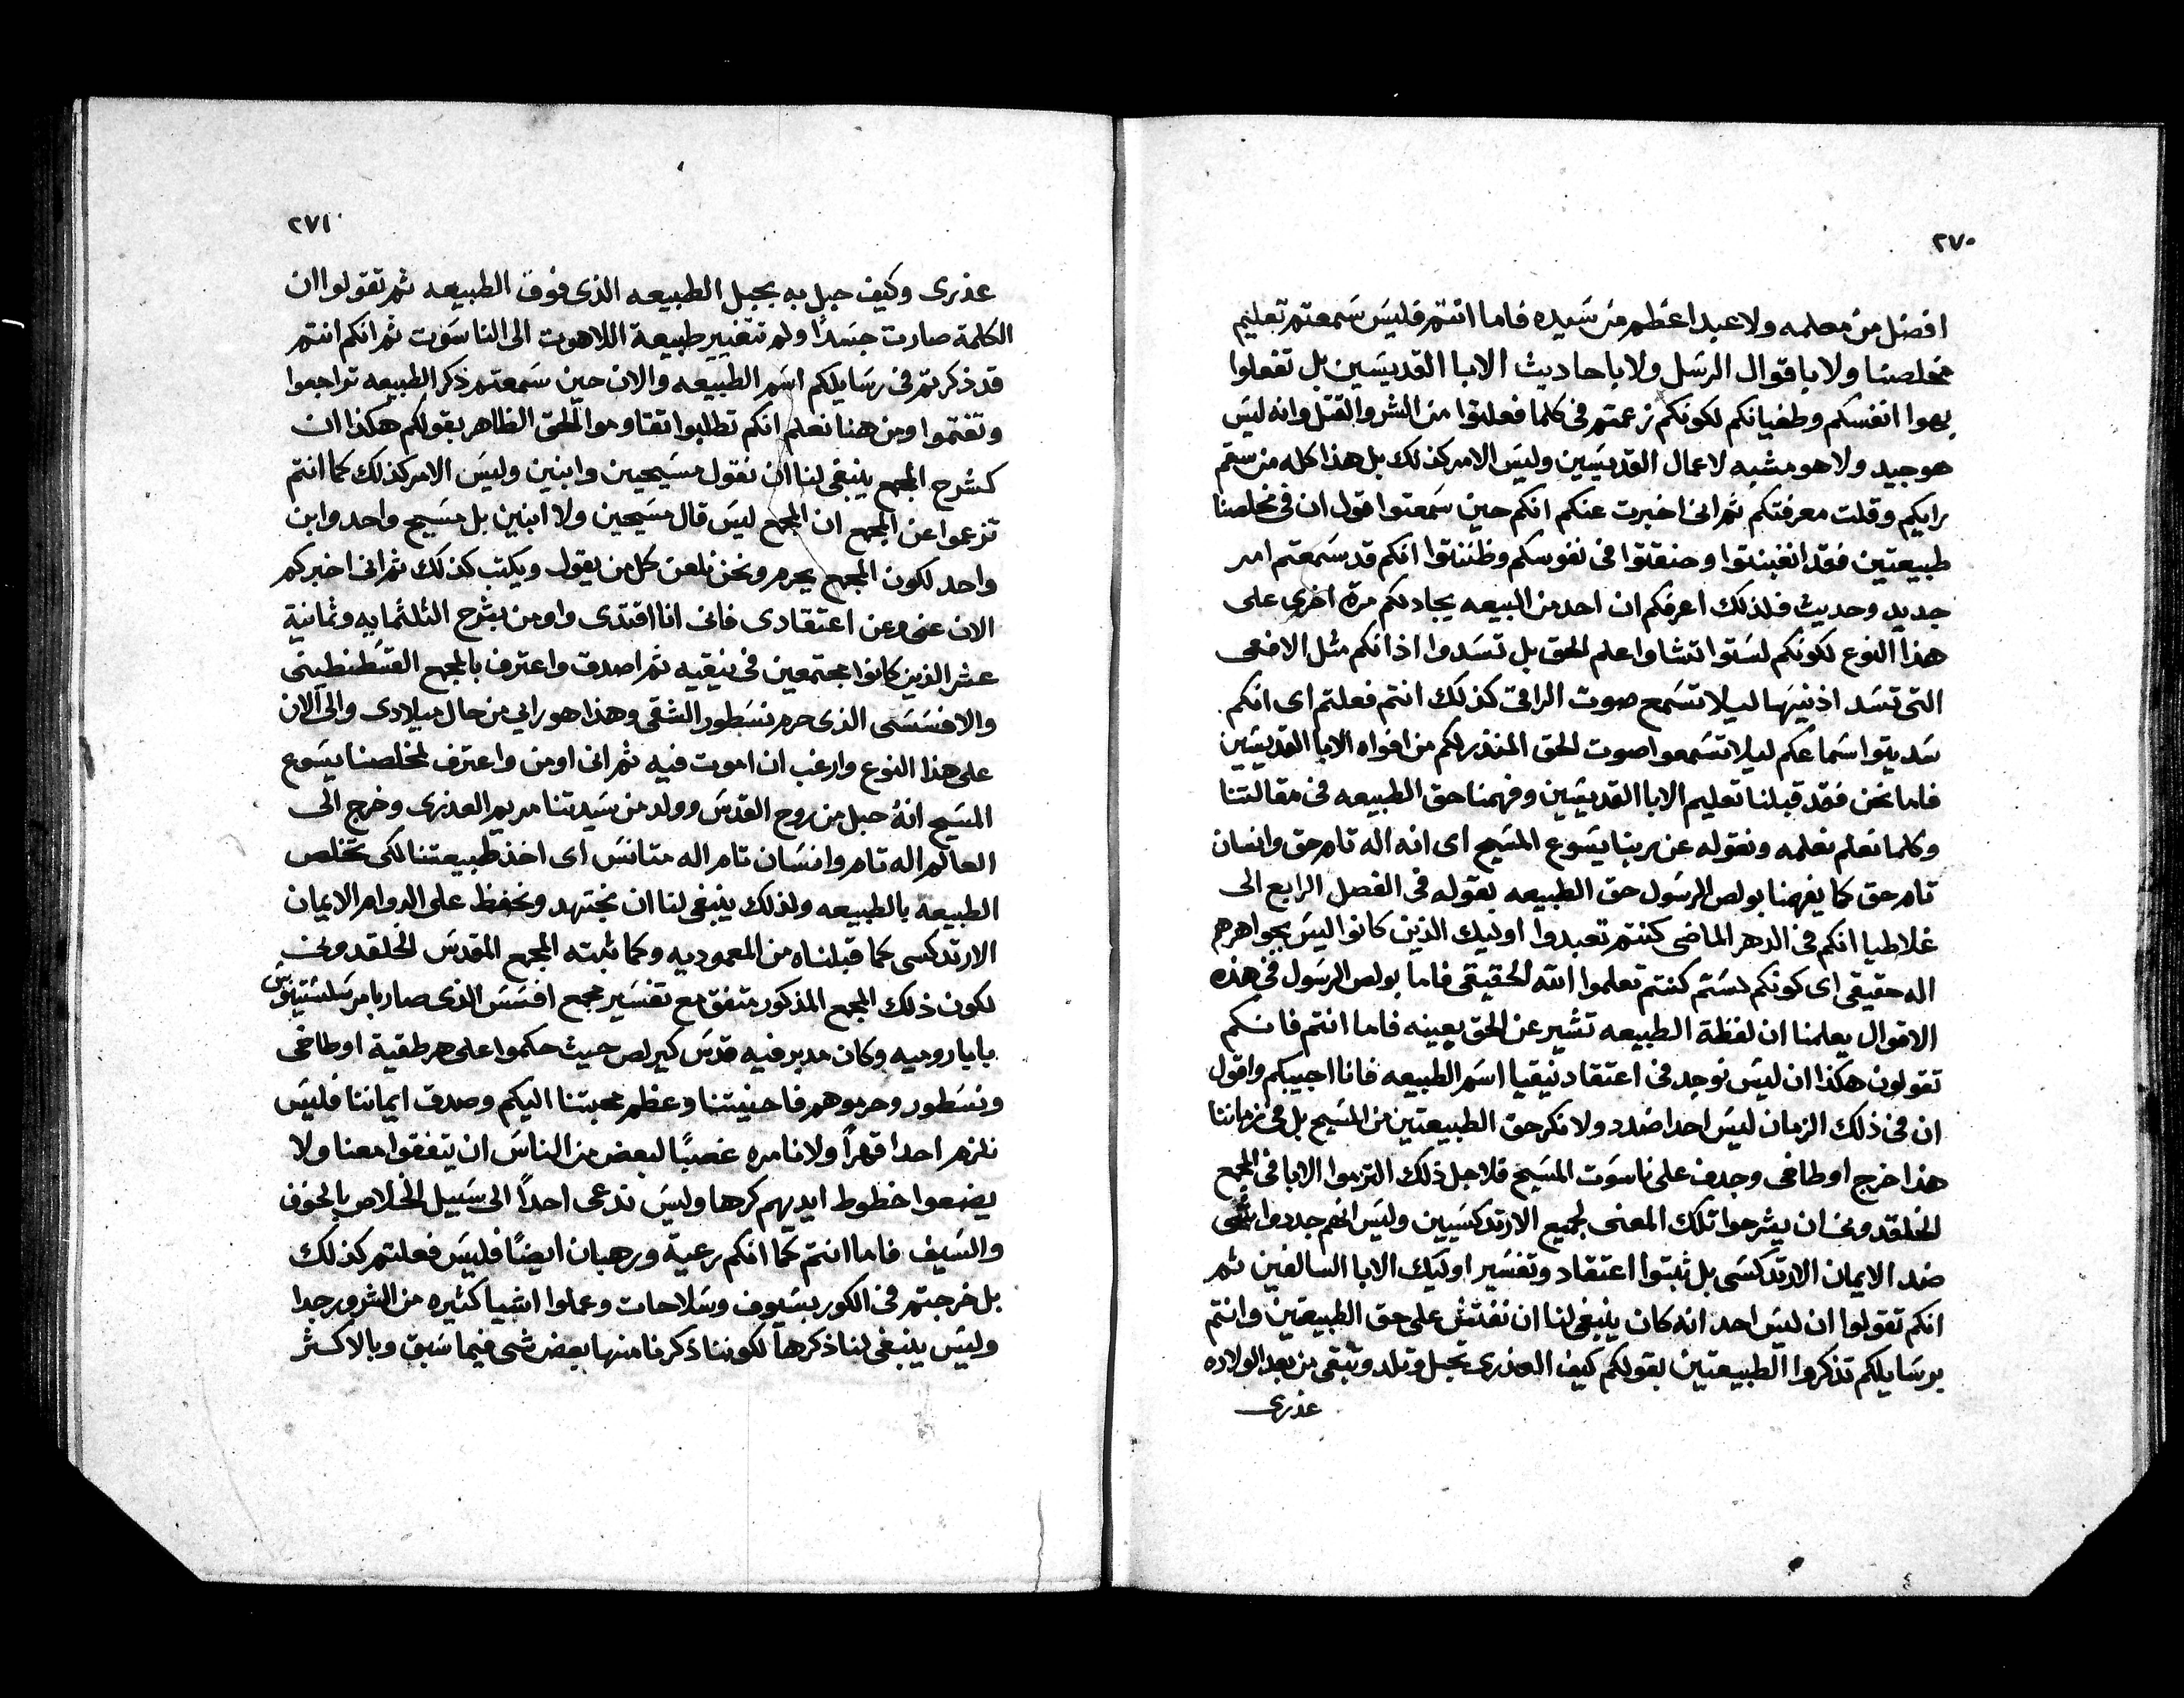 ٢٧٠
افضل من معلمه ولا عبدا عظم من سيده فاما انتم فليس سمعتم تعليم
مخلصنا ولا باقوال الرسل ولا باحاديث الابا القديسين بل تفعلوا
بهوا انفسكم وطغيانكم لكونكم زعمتم في كلما فعلتوا من الشر والقتل وانه ليس
هو جيد ولا هو مشبه لاعمال القديسين وليس الامر كذلك بل هذا كله من سقم
رايكم وقلت معرفتكم ثم اني اخبرت عنكم انكم حين سمعتوا قول ان في مخلصنا
طبيعتين فقد انغبنتوا وحنقتوا في نفوسكم وظننتوا انكم قد سمعتم امر
جديد وحديث فلذلك اعرفكم ان احد من البيعه يجادلكم مرة اخرى على
هذا النوع لكونكم لستوا تشاوا علم الحق بل تسدوا اذانكم مثل الافعى
التي تسد اذنيها ليلا تسمع صوت الراقي كذلك انتم فعلتم اى انكم
سديتوا سماعكم ليلا تسمعوا صوت الحق المنذر لكم من افواه الابا القديسين
فاما نحن فقد قبلنا تعليم الابا القديسين وفهمنا حق الطبيعه في مقالتنا
وكلما نعلم نعلمه ونقوله عن ربنا يسوع المسيح اى انه اله تام حق وانسان
تام حق كما يفهمنا بولص الرسول حق الطبيعه بقوله في الفصل الرابع الى
غلاطيا انكم في الدهر الماضي كنتم تعبدوا اوليك الذين كانوا ليس بجواهرهم
اله حقيقي اى كونكم لستم كنتم تعلموا الله الحقيقي فاما بولص الرسول في هذه
الاقوال يعلمنا ان لفظة الطبيعه تشير عن الحق بعينه فاما انتم فانكم
تقولون هكذا ان ليس نوجد في اعتقاد نيقيا اسم الطبيعه فانا اجيبكم واقول
ان في ذلك الزمان ليس احدا ضدد ولا نكر حق الطبيعتين من المسيح بل في زماننا
هذا خرج اوطاخى وجدف على ناسوت المسيح فلاجل ذلك التزموا الابا في المجمع
الخلقدوني ان يشرحوا تلك المعنى لجميع الارتدكسيين وليس انهم جددوا شي
ضد الايمان الارتدكسي بل ثبتوا اعتقاد وتفسير اوليك الابا السالفين ثم
انكم تقولوا ان ليس احد انه كان ينبغي لنا ان نفتش على حق الطبيعتين وانتم
برسايلكم تذكروا الطبيعتين بقولكم كيف العذرى تحبل وتلد وتبقى من بعد الولاده
عذرى
٢٧١
عذرى وكيف حبل به بحبل الطبيعه الذى فوق الطبيعه ثم تقولوا ان
الكلمة صارت جسدًا ولم تتغيير طبيعة اللاهوت الى الناسوت ثم انكم انتم
قد ذكرتم في رسايلكم اسم الطبيعه والان حين سمعتم ذكر الطبيعه تراجعوا
وتغتموا ومن هنا نعلم انكم تطلبوا تقاوموا الحق الظاهر بقولكم هكذا ان
كشرح المجمع ينبغي لنا ان نقول مسيحيين وابنين وليس الامر كذلك كما انتم
تزعموا عن المجمع ان المجمع ليس قال مسيحين ولا ابنين بل مسيح واحد وابن
واحد لكون المجمع يحرم ونحن نلعن كل من يقول ويكتب كذلك ثم اني اخبركم
الان عني وعن اعتقادى فاني انا اقتدى واومن بشرح الثلثمايه وثمانية
عشر الذين كانوا مجتمعين في نيقيه ثم اصدق واعترف بالمجمع القسطنطيني
والافسسى الذى حرم نسطور الشقي وهذا هو رايي من حال ميلادى والى الان
على هذا النوع وارغب ان اموت فيه ثم اني اومن واعترف لمخلصنا يسوع
المسيح انهُ حبل من روح القدس وولد من سيدتنا مريم العذرى وخرج الى
العالم اله تام وانسان تام اله متانس اى اخذ طبيعتنا لكي تخلص
الطبيعه بالطبيعه ولذلك ينبغي لنا ان نجتهد ونحفظ على الدوام الايمان
الارتدكسى كما قبلناه من المعموديه وكما ثبته المجمع المقدس الخلقدوني
لكون ذلك المجمع المذكور متفق مع تفسير مجمع افسس الذى صار بامر سلستينوس
بابا روميه وكان مدبر فيه قدس كيرلص حيث حكموا على هرطقية اوطاخى
ونسطور وحرموهم فاحنيتنا وعظم محبتنا اليكم وصدق ايماننا فليس
نلزم احدا قهراً ولا نامره غصبًا لبعض من الناس ان يتفقوا معنا ولا
يضعوا خطوط ايديهم كرها وليس ندعى احداً الى سبيل الخلاص بالخوف
والسيف فاما انتم كما انكم رعية ورهبان ايضًا فليس فعلتم كذلك
بل خرجتم في الكور بسيوف وسلاحات وعملوا اشيا كثيره من الشرور جدا
وليس ينبغي لنا ذكرها لكوننا ذكرنا منها بعض شي فيما سبق وبالاكثر